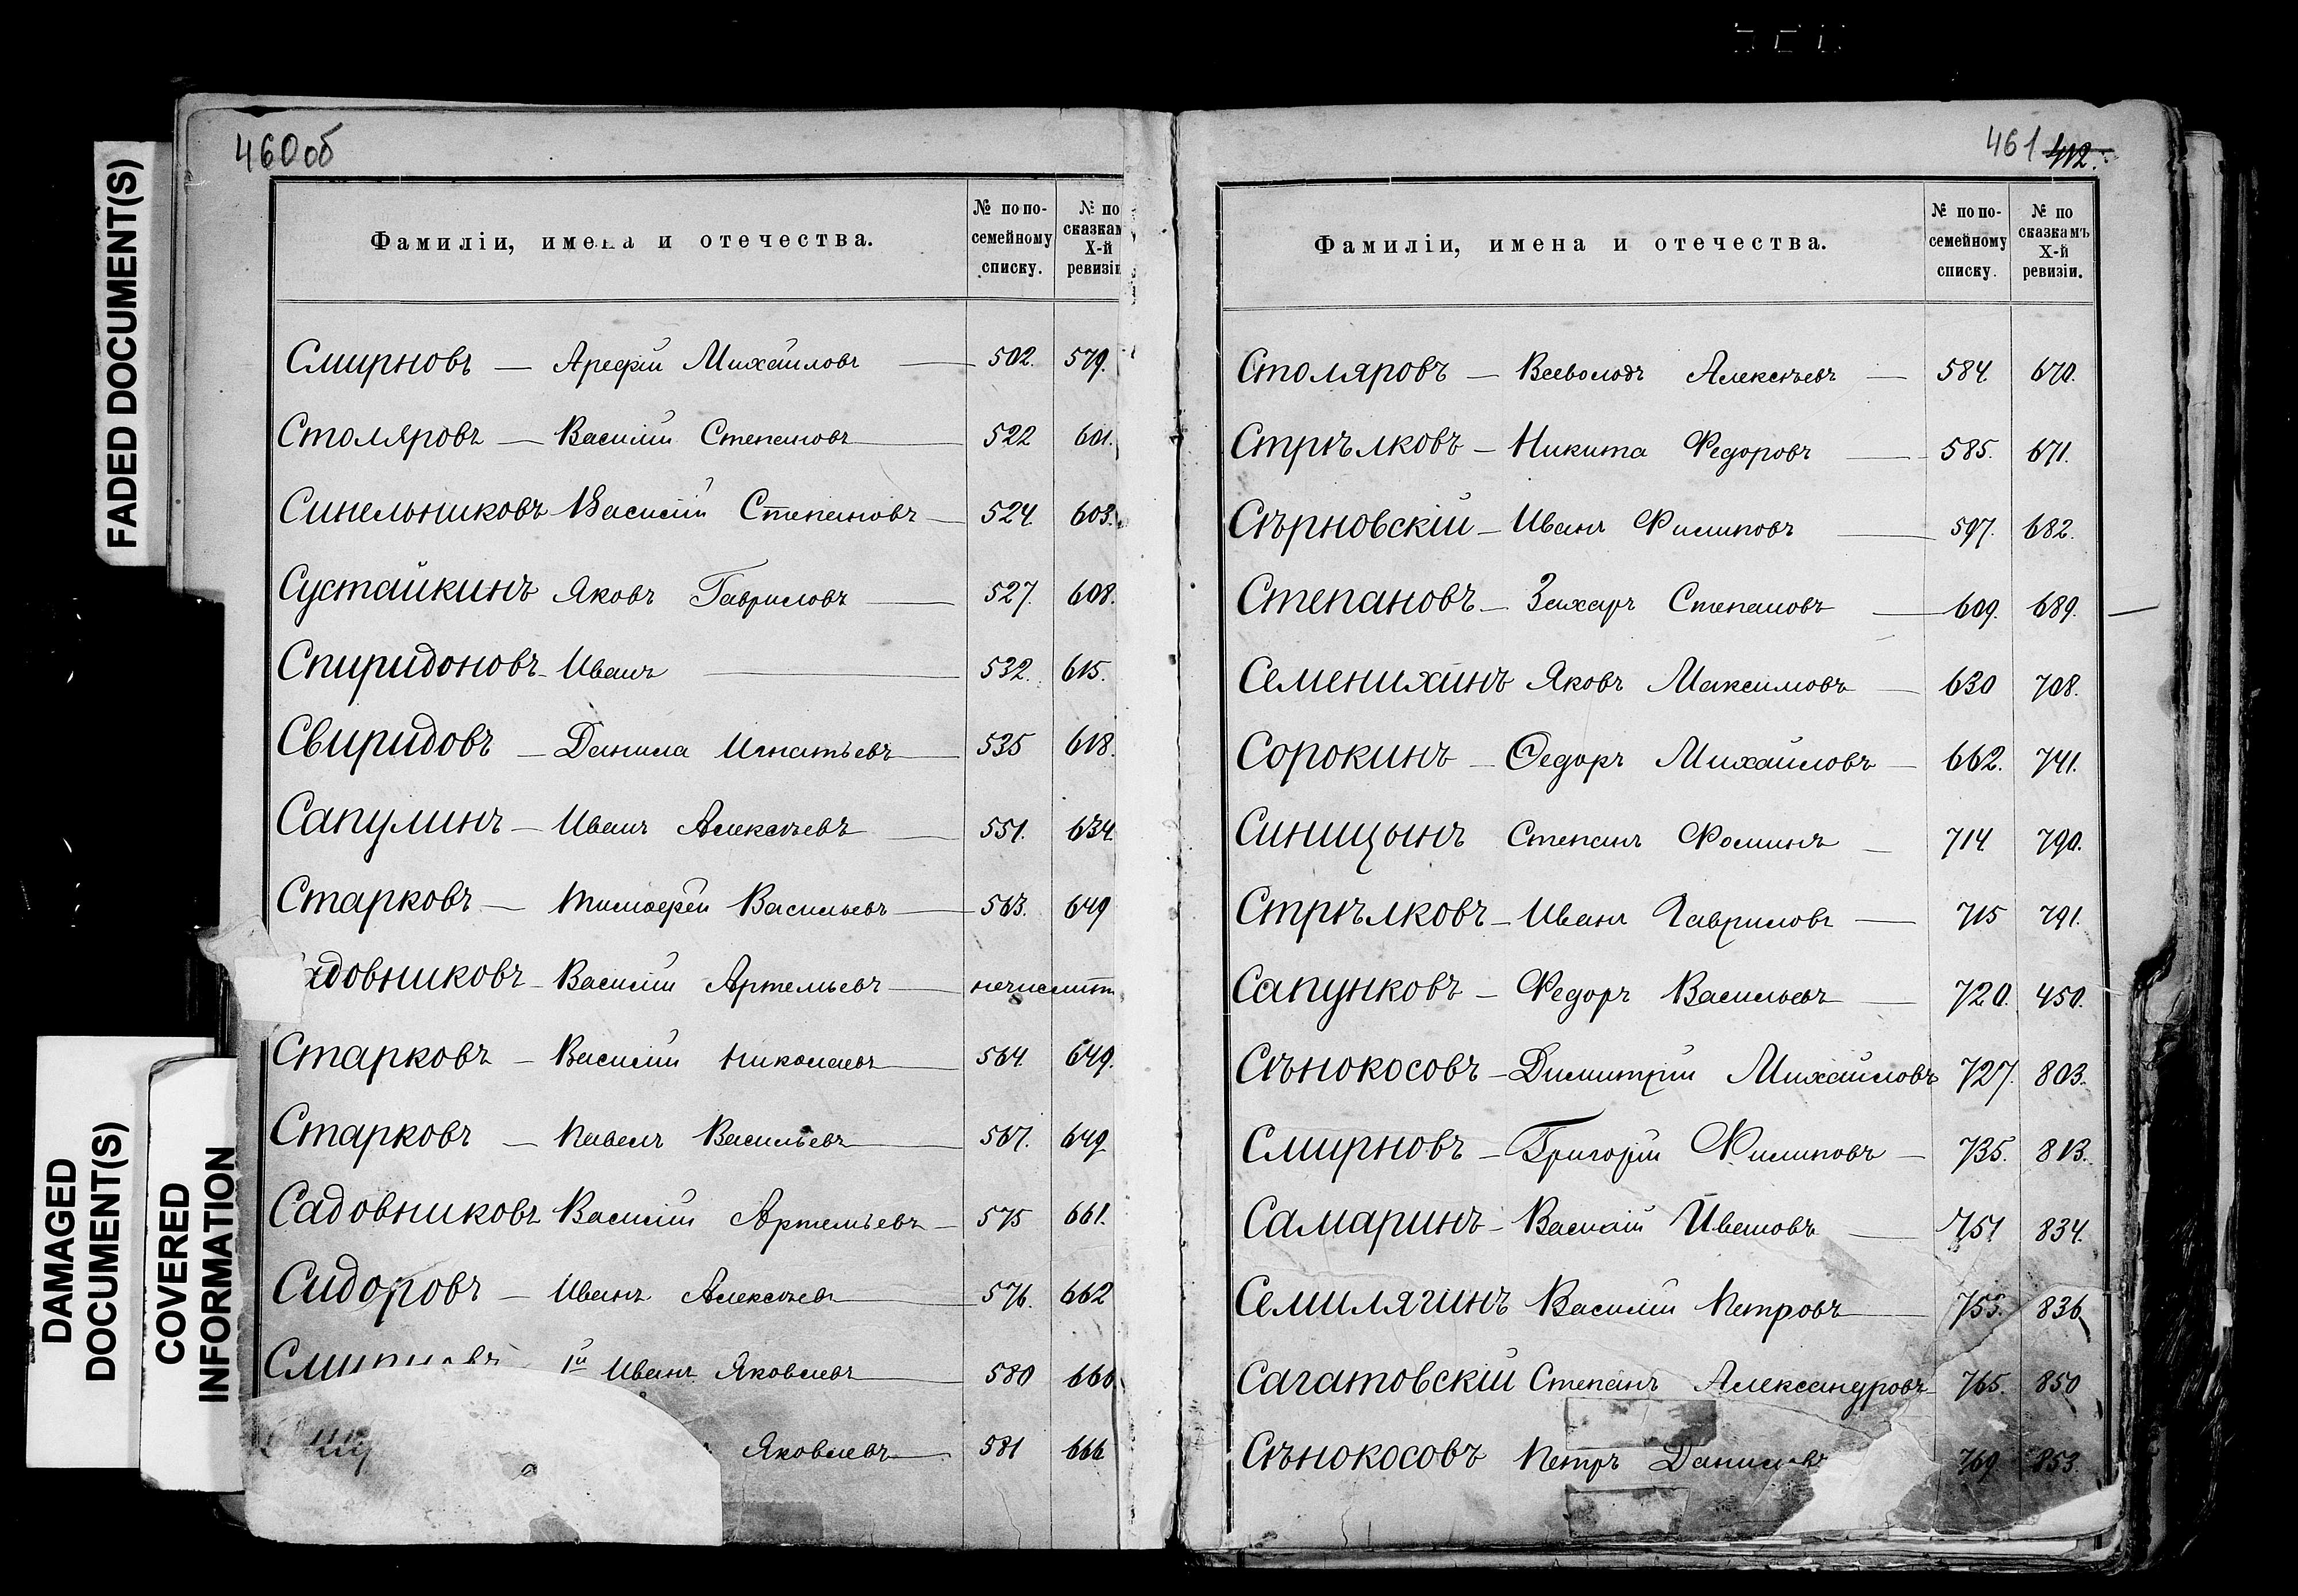 460об
Фамиліи, имена и отечества.
№ по по-
семейному
списку.
№ по
сказкам
X-й
ревизіи
Смирновъ — Арефій Михайловъ — 502. 579.
Столяровъ — Василій Степановъ — 522 601.
Синельниковъ Василій Степановъ — 524. 603.
Сустайкинъ Яковъ Гавриловъ — 527. 608.
Спиридоновъ - Иванъ — 532. 615.
Свиридовъ — Данила Игнатьевъ — 535 618.
Сапулинъ — Иванъ Алексѣевъ — 551. 634
Старковъ — Тимоѳей Васильевъ — 563. 649
адовниковъ - Василій Артемьевъ — нечислит
Старковъ — Василій Николаевъ — 564. 649.
Старковъ — Павелъ Васильевъ — 567. 649
Садовниковъ Василій Артемьевъ — 575 661.
Сидоровъ — Иванъ Алексѣевъ — 576. 662
1й Иванъ Яковлевъ — 580 666
Яковлевъ — 581 666
461 412.
Фамиліи, имена и отечества.
№ по по-
семейному
списку.
№ по
сказкамъ
X-й
ревизіи.
Столяровъ — Всеволодъ Алексѣевъ — 584. 670.
Стрѣлковъ — Никита Федоровъ — 585. 671.
Сѣрновскій — Иванъ Филиповъ — 597. 682.
Степановъ — Захаръ Степановъ — 609. 689. —
Семенихинъ Яковъ Максимовъ — 630 708.
Сорокинъ — Ѳедоръ Михайловъ — 662. 741.
Синицынъ Степанъ Фоминъ — 714 790.
Стрѣлковъ — Иванъ Гавриловъ — 715 791.
Сапунковъ — Федоръ Васильевъ — 720. 450.
Сѣнокосовъ — Димитрій Михайловъ 727. 803.
Смирновъ — Григорій Филиповъ — 735. 813.
Самаринъ - Василій Ивановъ — 751 834.
Семилягинъ Василій Петровъ — 755. 836
Сагатовскій Степанъ Александровъ — 765. 850
Сѣнокосовъ Петръ Даниловъ 769 853.
FADED DOCUMENT(S)
DAMAGED
DOCUMENT(S)
COVERED
INFORMATION